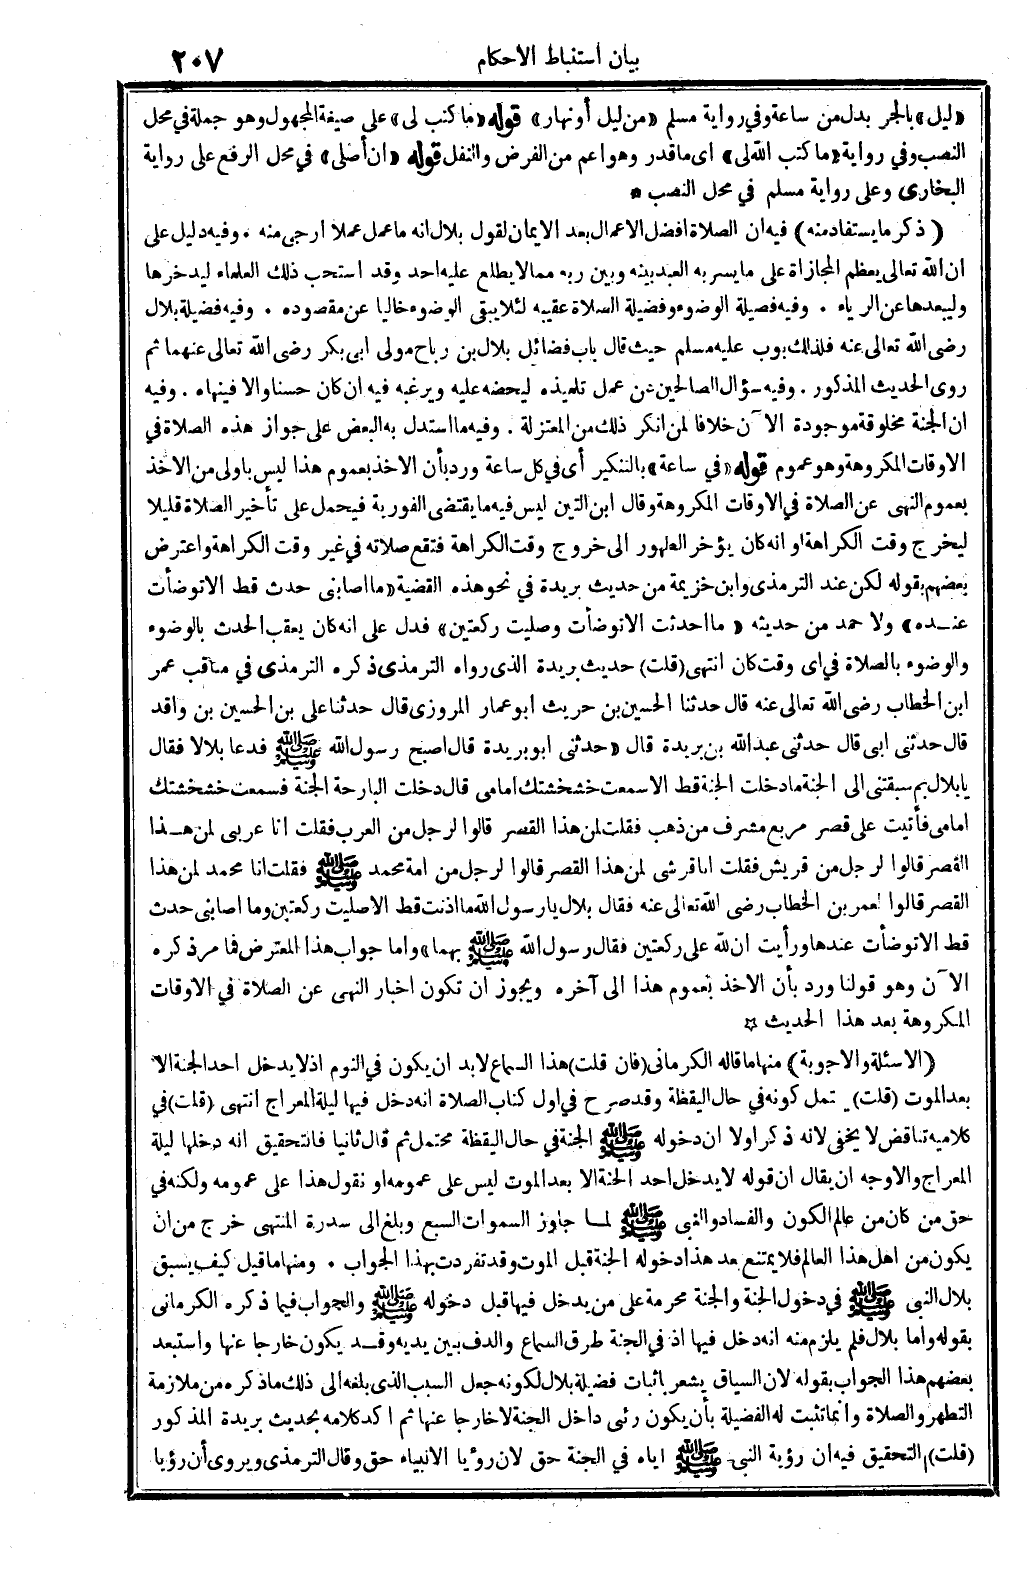 بيان استنباط الاحكام ٢٠٧
«ليل» بالجر بدل من ساعة وفي رواية مسلم «من ليل أو نهار» قوله «ما كتب لى» على صيغة المجهول وهو جملة في محل
النصب وفي رواية «ما كتب الله لى» اى ما قدر وهو اعم من الفرض والنفل قوله «ان أصلى» في محل الرفع على رواية
البخارى وعلى رواية مسلم في محل النصب *
(ذكر ما يستفاد منه) فيه ان الصلاة افضل الاعمال بعد الايمان لقول بلال انه ما عمل عملا ارجى منه . وفيه دليل على
ان الله تعالى يعظم المجازاة على ما يسر به العبد بينه وبين ربه مما لا يطلع عليه احد وقد استحب ذلك العلماء ليدخرها
وليبعدها عن الرياء . وفيه فضيلة الوضوء وفضيلة الصلاة عقيبه لئلا يبقى الوضوء خاليا عن مقصوده . وفيه فضيلة بلال
رضى الله تعالى عنه فلذلك بوب عليه مسلم حيث قال باب فضائل بلال بن رباح مولى ابى بكر رضى الله تعالى عنهما ثم
روى الحديث المذكور . وفيه سؤال الصالحين عن عمل تلميذه ليحضه عليه ويرغبه فيه ان كان حسنا والا فينهاه . وفيه
ان الجنة مخلوقة موجودة الآن خلافا لمن انكر ذلك من المعتزلة . وفيه ما استدل به البعض على جواز هذه الصلاة في
الاوقات المكروهة وهو عموم قوله «في ساعة» بالتنكير أى في كل ساعة ورد بأن الاخذ بعموم هذا ليس باولى من الاخذ
بعموم النهى عن الصلاة في الاوقات المكروهة وقال ابن التين ليس فيه ما يقتضى الفورية فيحمل على تأخير الصلاة قليلا
ليخرج وقت الكراهة او انه كان يؤخر الطهور الى خروج وقت الكراهة فتقع صلاته في غير وقت الكراهة واعترض
بعضهم بقوله لكن عند الترمذى وابن خزيمة من حديث بريدة في نحو هذه القضية «ما اصابنى حدث قط الا توضأت
عنـده» ولاحمد من حديثه «ما احدثت الا توضأت وصليت ركعتين» فدل على انه كان يعقب الحدث بالوضوء
والوضوء بالصلاة في اى وقت كان انتهى (قلت) حديث بريدة الذى رواه الترمذى ذكره الترمذى في مناقب عمر
ابن الخطاب رضى الله تعالى عنه قال حدثنا الحسين بن حريث ابو عمار المروزى قال حدثنا على بن الحسين بن واقد
قال حدثنى ابى قال حدثنى عبد الله بن بريدة قال «حدثنى ابو بريدة قال اصبح رسول الله ﷺ فدعا بلالا فقال
يا بلال بم سبقتنى الى الجنة ما دخلت الجنة قط الا سمعت خشخشتك امامى قال دخلت البارحة الجنة فسمعت خشخشتك
امامى فأتيت على قصر مربع مشرف من ذهب فقلت لمن هذا القصر قالوا لرجل من العرب فقلت انا عربى لمن هـذا
القصر قالوا لرجل من قريش فقلت انا قرشى لمن هذا القصر قالوا لرجل من امة محمد ﷺ فقلت انا محمد لمن هذا
القصر قالوا لعمر بن الخطاب رضى الله تعالى عنه فقال بلال يا رسول الله ما اذنت قط الا صليت ركعتين وما اصابنى حدث
قط الا توضأت عندها ورأيت ان لله على ركعتين فقال رسول الله ﷺ بهما» واما جواب هذا المعترض فما مر ذكره
الآن وهو قولنا ورد بأن الاخذ بعموم هذا الى آخره ويجوز ان تكون اخبار النهى عن الصلاة في الاوقات
المكروهة بعد هذا الحديث ☆
(الاسئلة والاجوبة) منها ما قاله الكرمانى (فان قلت) هذا السماع لابد ان يكون في النوم اذ لا يدخل احد الجنة الا
بعد الموت (قلت) يحتمل كونه في حال اليقظة وقد صرح في اول كتاب الصلاة انه دخل فيها ليلة المعراج انتهى (قلت) في
كلاميه تناقض لا يخفى لانه ذكر اولا ان دخوله ﷺ الجنة في حال اليقظة محتمل ثم قال ثانيا فالتحقيق انه دخلها ليلة
المعراج والاوجه ان يقال ان قوله لا يدخل احد الجنة الا بعد الموت ليس على عمومه او نقول هذا على عمومه ولكنه في
حق من كان من عالم الكون والفساد والنبى ﷺ لمـا جاوز السموات السبع وبلغ الى سدرة المنتهى خرج من ان
يكون من اهل هذا العالم فلا يمتنع بعد هذا دخوله الجنة قبل الموت وقد تفردت بهذا الجواب . ومنها ما قيل كيف يسبق
بلال النبى ﷺ في دخول الجنة والجنة محرمة على من يدخل فيها قبل دخوله ﷺ والجواب فيما ذكره الكرمانى
بقوله واما بلال فلم يلزم منه انه دخل فيها اذ في الجنة ظرف السماع والدف بين يديه وقـد يكون خارجا عنها واستبعد
بعضهم هذا الجواب بقوله لان السياق يشعر باثبات فضيلة بلال لكونه جعل السبب الذى بلغه الى ذلك ما ذكره من ملازمة
التطهر والصلاة وانما تثبت له الفضيلة بأن يكون رئى داخل الجنة لا خارجا عنها ثم اكد كلامه بحديث بريدة المذكور
(قلت) التحقيق فيه ان رؤية النبى ﷺ اياه في الجنة حق لان رؤيا الانبياء حق وقال الترمذى ويروى أن رؤيا